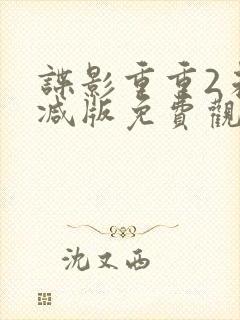 諜影重重2未
減版免費觀
沈又西